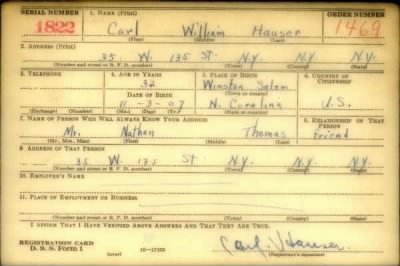 SERIAL NUMBER 1. NAME (Print) ORDER NUMBER
1822 Carl William Hauser 1469
(First) (Middle) (Last)
2. ADDRESS (Print)
35 W. 135 St. N.Y. N.Y.
(Number and street or R. F. D. number) (Town) (County) (State)
3. TELEPHONE 4. AGE IN YEARS 5. PLACE OF BIRTH 6. COUNTRY OF CITIZENSHIP
32 Winston Salem
DATE OF BIRTH (Town or county)
11-3-07 N. Carolina U.S.
(Exchange) (Number) (Mo.) (Day) (Yr.) (State or country)
7. NAME OF PERSON WHO WILL ALWAYS KNOW YOUR ADDRESS 8. RELATIONSHIP OF THAT PERSON
Mr. Nathan Thomas friend
(Mr., Mrs., Miss) (First) (Middle) (Last)
9. ADDRESS OF THAT PERSON
35 W. St. N.Y. N.Y.
(Number and street or R. F. D. number) (Town) (County) (State)
10. EMPLOYER'S NAME
11. PLACE OF EMPLOYMENT OR BUSINESS
(Number and street or R. F. D. number) (Town) (County) (State)
I AFFIRM THAT I HAVE VERIFIED ABOVE ANSWERS AND THAT THEY ARE TRUE.
REGISTRATION CARD
D. S. S. Form 1 (over) Carl Hauser
(Registrant's signature)